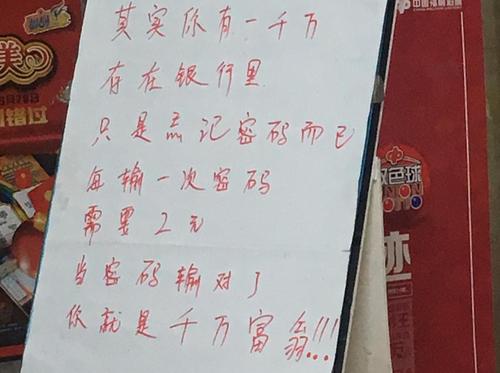 其实你有一千万
存在银行里
只是忘记密码而已
每输一次密码
需要2元
当密码输对了
你就是千万富翁!!!
美
中国福利彩票
双色球